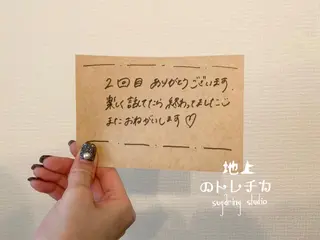 2回目 ありがとうございます
楽しく話してたら 終わってました
またおねがいします♡
地上
のトレチカ